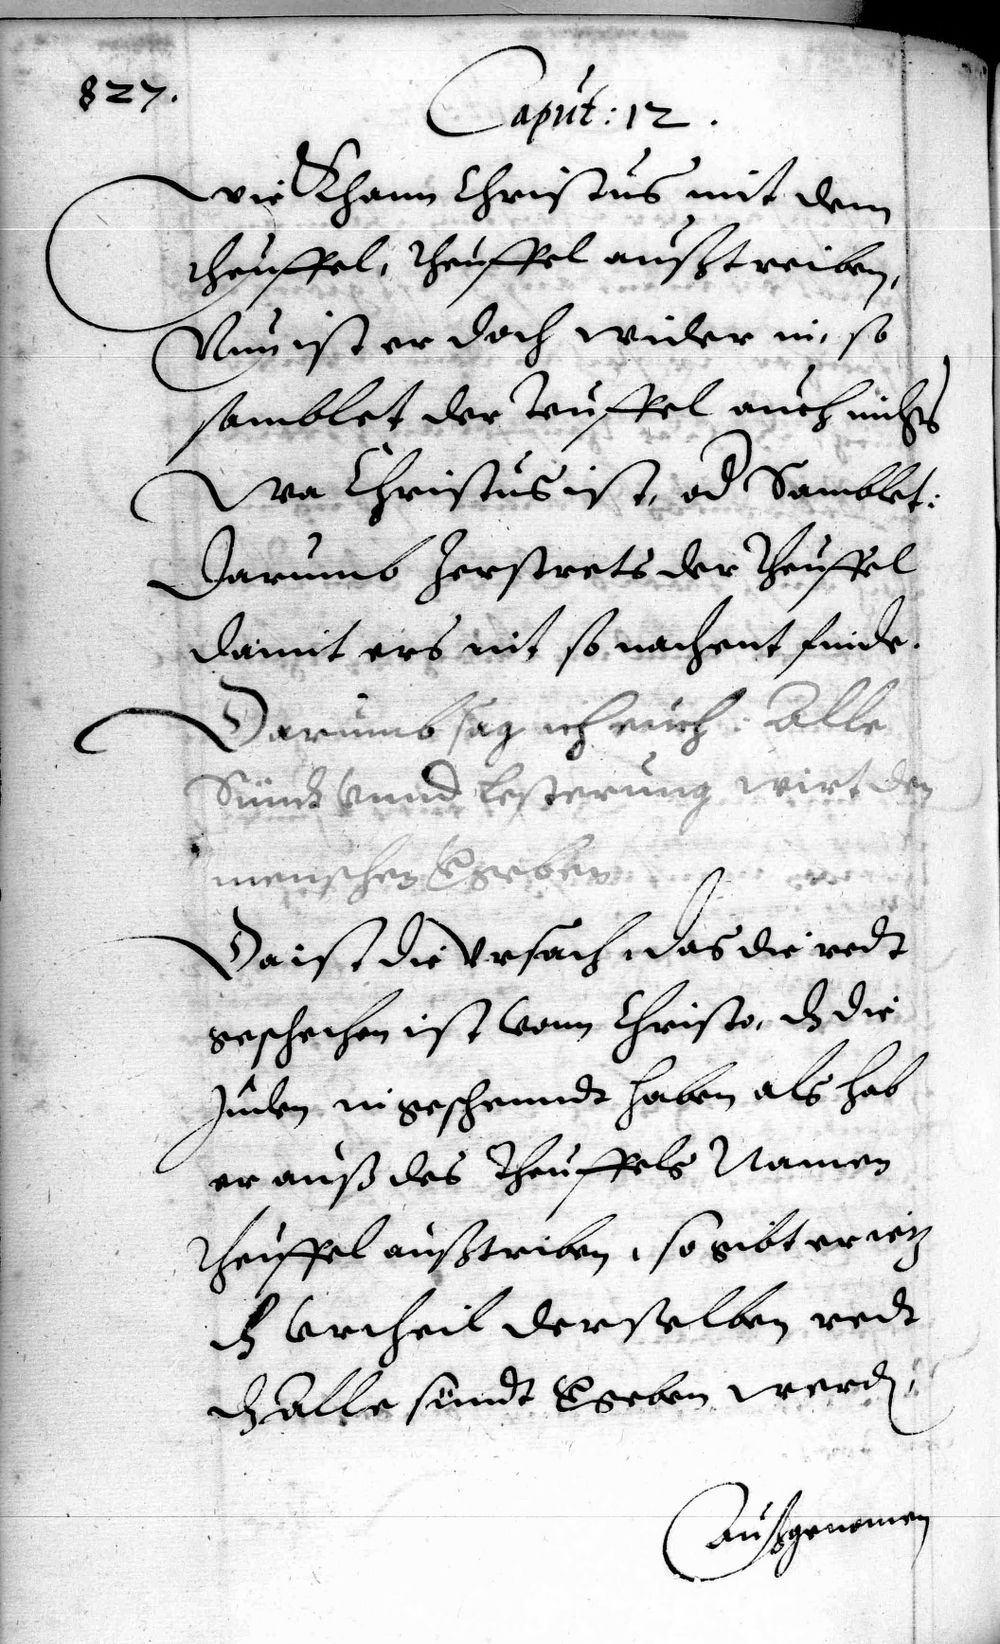 827.
Caput: 12.
Wie Khann Christus mit dem
theuffel, Theuffel außtreiben,
Nun ist er doch wider in, so
samblet der Teuffel auch nichts
Wa Christus ist, od Samblet:
Darumb zerstrets der Theuffel
damit ers nit so nachent finde.
Darumb sag ich euch: Alle
Sündt vnnd lesterung wirt den
menschen Vgeben
Da ist die Vrsach, das die redt
geschechen ist vonn Christo, dz die
Juden in geschenndt haben als hab
er auß des Theuffels Namen
Theuffel außtriben, so gibt er ietz
dz vrtheil derselben redt
dz Alle sündt Vgeben werd,
Außgenomen